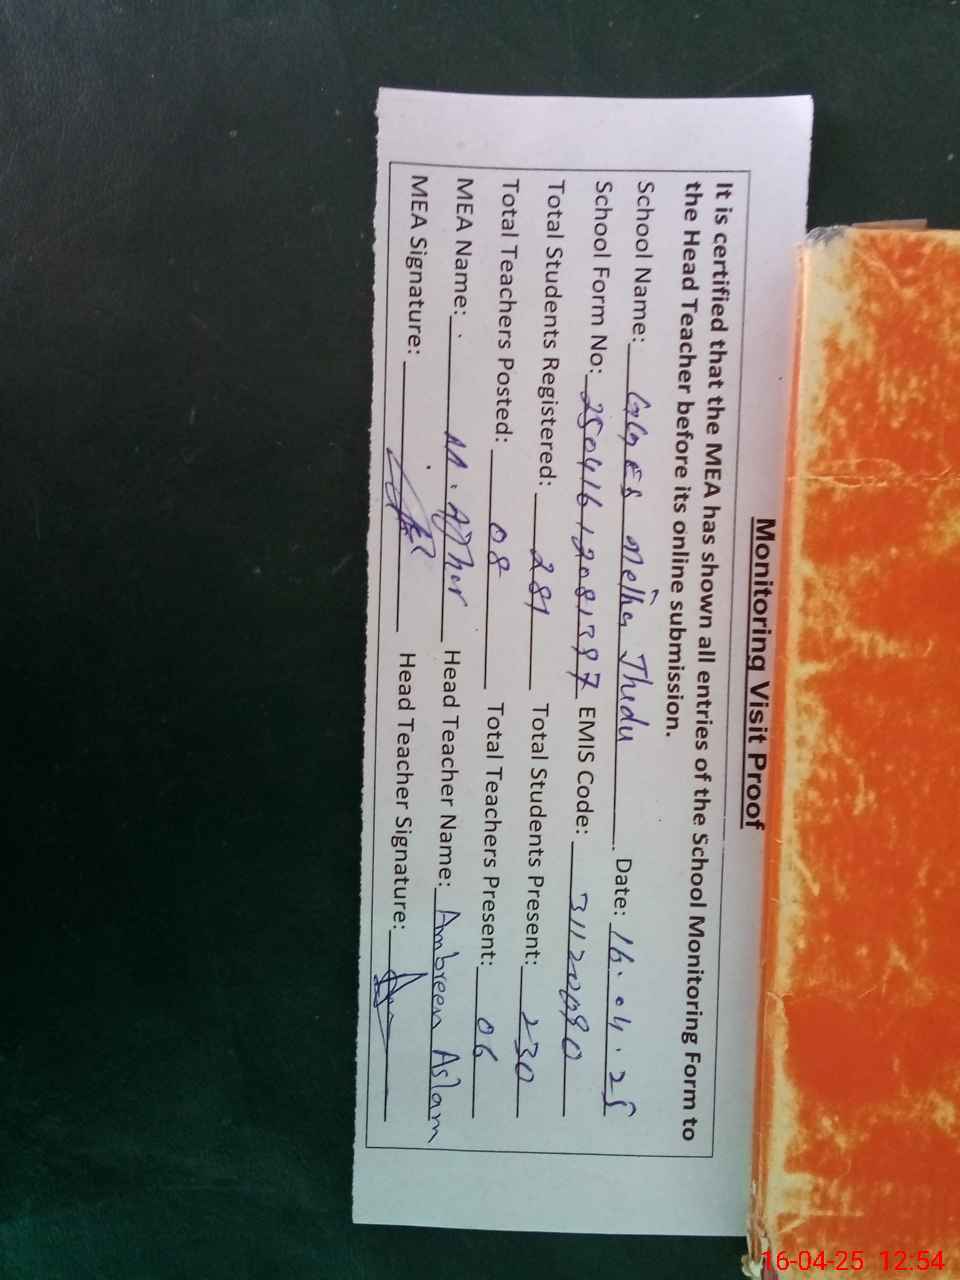 Monitoring Visit Proof
It is certified that the MEA has shown all entries of the School Monitoring Form to
the Head Teacher before its online submission.
School Name: GGES Thedu Date: 16.04.25
School Form No: 25041612081397 EMIS Code: 31120090
Total Students Registered: 281 Total Students Present: 230
Total Teachers Posted: 08 Total Teachers Present: 06
MEA Name: M. Ather Head Teacher Name: Ambreen Aslam
MEA Signature: Head Teacher Signature:
16-04-25 12:54